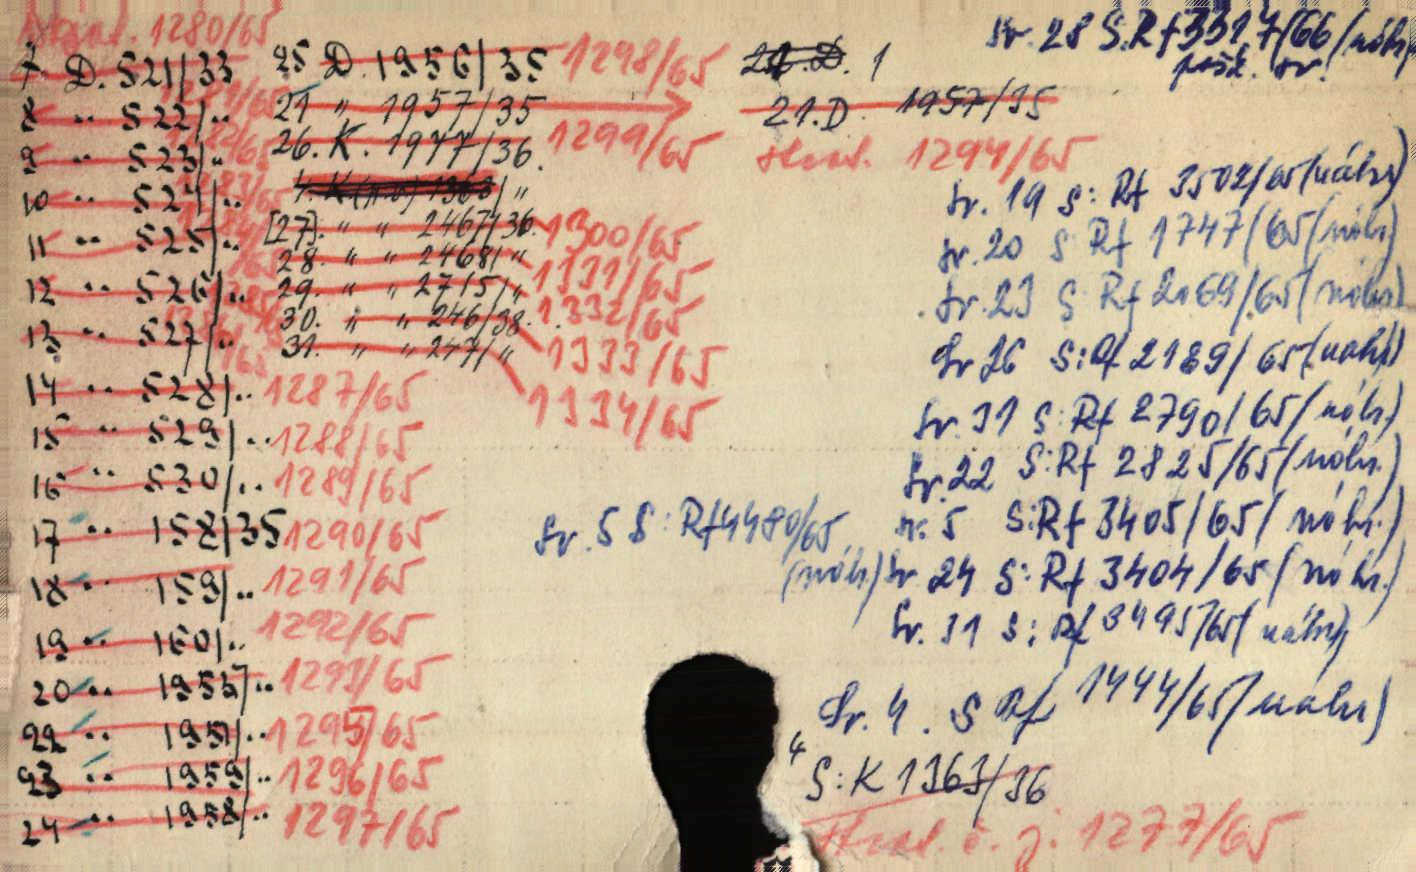 1280/65
7. D. 521/33
8 " 522/..
9 " 523/..
10 " 524/..
11 " 525/..
12 " 526/..
13 " 527/..
14 " 528/.. 1287/65
15 " 529/.. 1288/65
16 " 530/.. 1289/65
17 " 158/35 1290/65
18 " 159/.. 1291/65
19 " 160/.. 1292/65
20 " 1955/.. 1293/65
22 " 1951/.. 1295/65
23 " 1959/.. 1296/65
24 " 1958/.. 1297/65
25 D. 1956/35 1298/65
21 " 1957/35
26. K. 1977/36. 1299/65
[27]. " " 2467/36. 1300/65
28. " " 2468/" 1331/65
29. " " 2715/" 1332/65
30. " " 246/38. 1333/65
31. " " 247/" 1334/65
21. D. 1957/35
1294/65
sv. 5 S: Rf 4480/65
(náhr.)
sv. 28 S: Rf 3317/66 (náhr.)
sv. 19 S: Rf 3502/65 (náhr.)
sv. 20 S Rf 1747/65 (náhr.)
sv. 23 S Rf 2169/65 (náhr.)
sv. 26 S: Rf 2189/65 (náhr.)
sv. 31 S: Rf 2790/65 (náhr.)
sv. 22 S: Rf 2825/65 (náhr.)
sv. 5 S: Rf 3405/65 (náhr.)
sv. 24 S: Rf 3404/65 (náhr.)
sv. 31 S: Rf 3495/65 (náhr.)
sv. 4. S Rf 1444/65 (náhr.)
4 S: K 1363/36
č. j. 1277/65